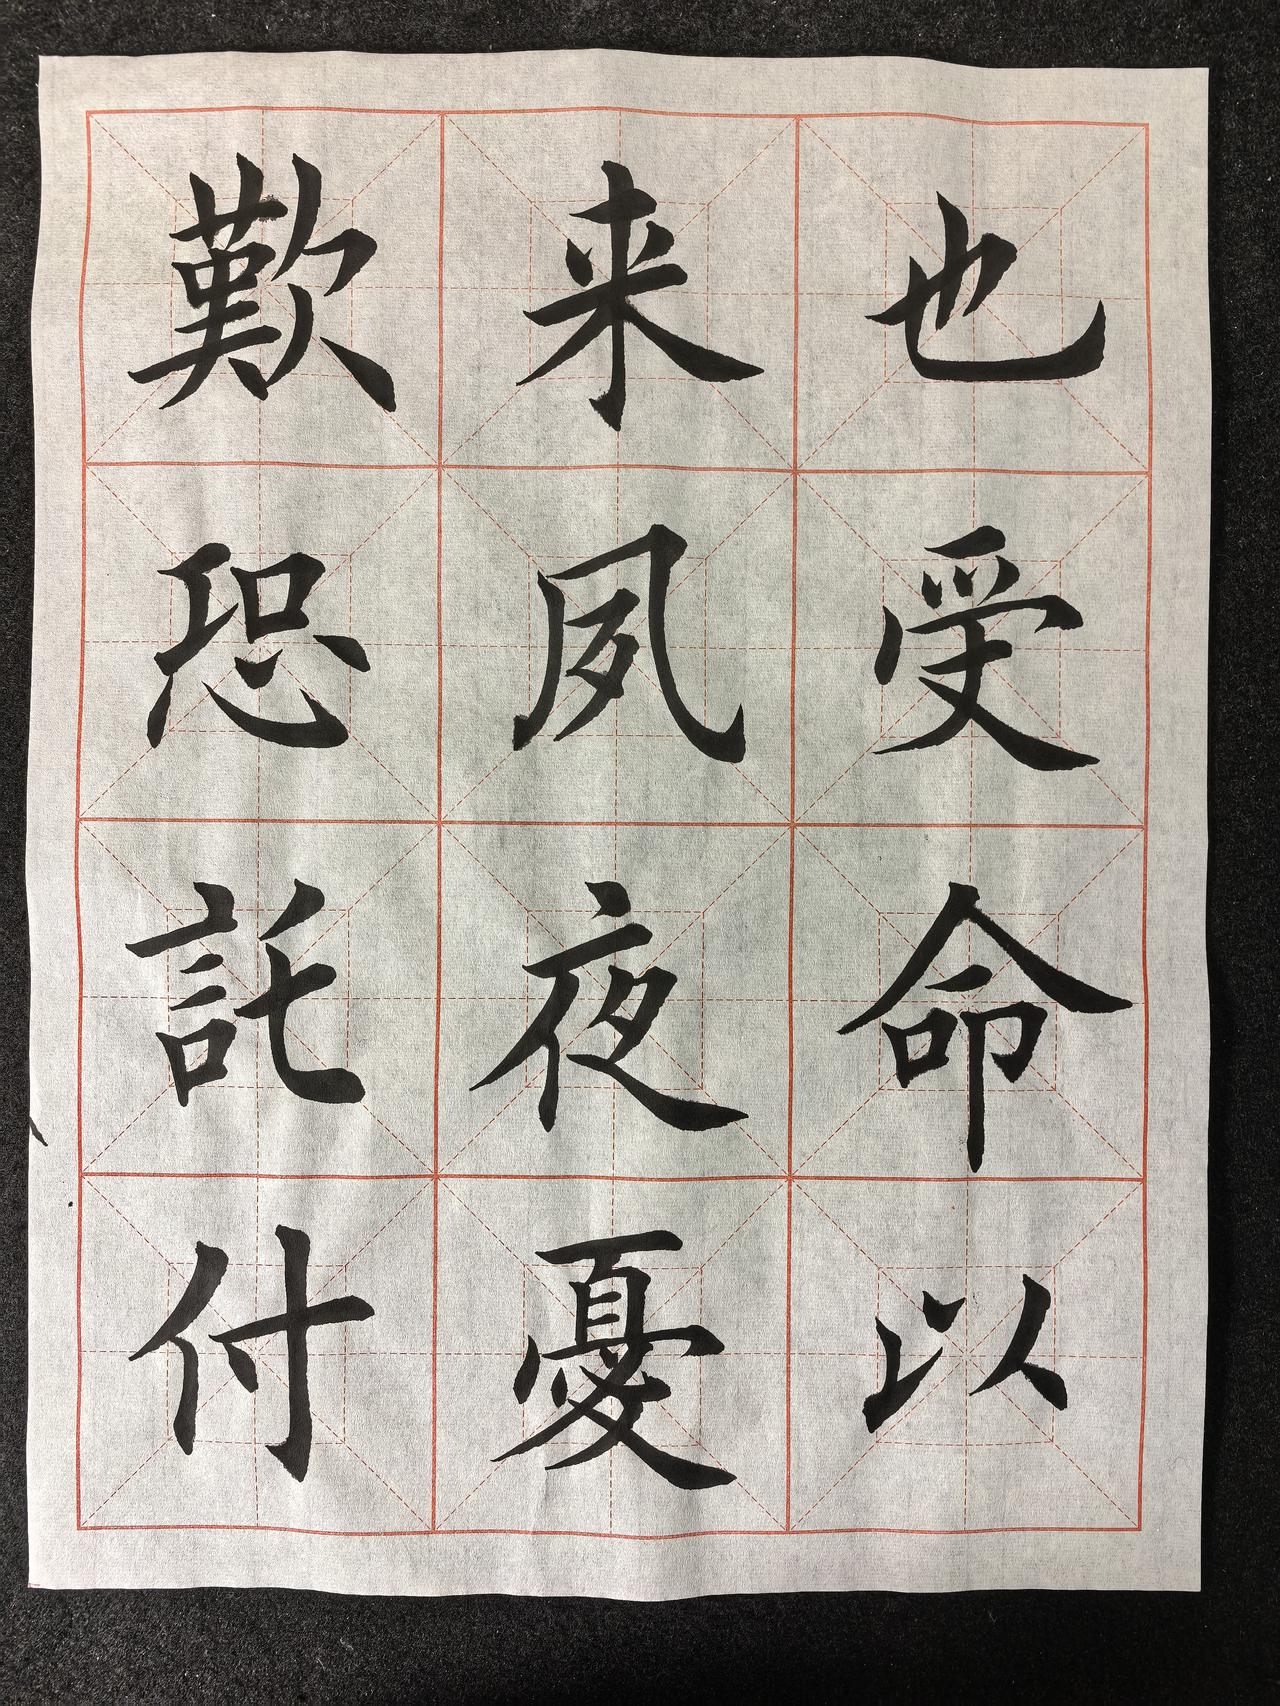 也受命以
来夙夜憂
歎恐託付